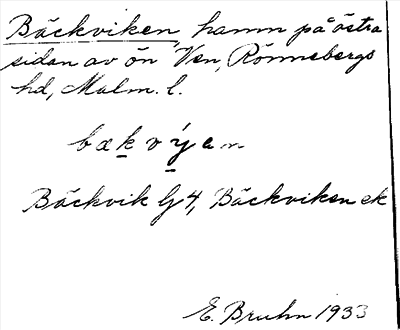 Bäckviken, hamn på östra
sidan av ön Ven, Rönnebergs
hd, Malm. l.
Bäckvik G 4, Bäckviken ek
E. Bruhn 1933